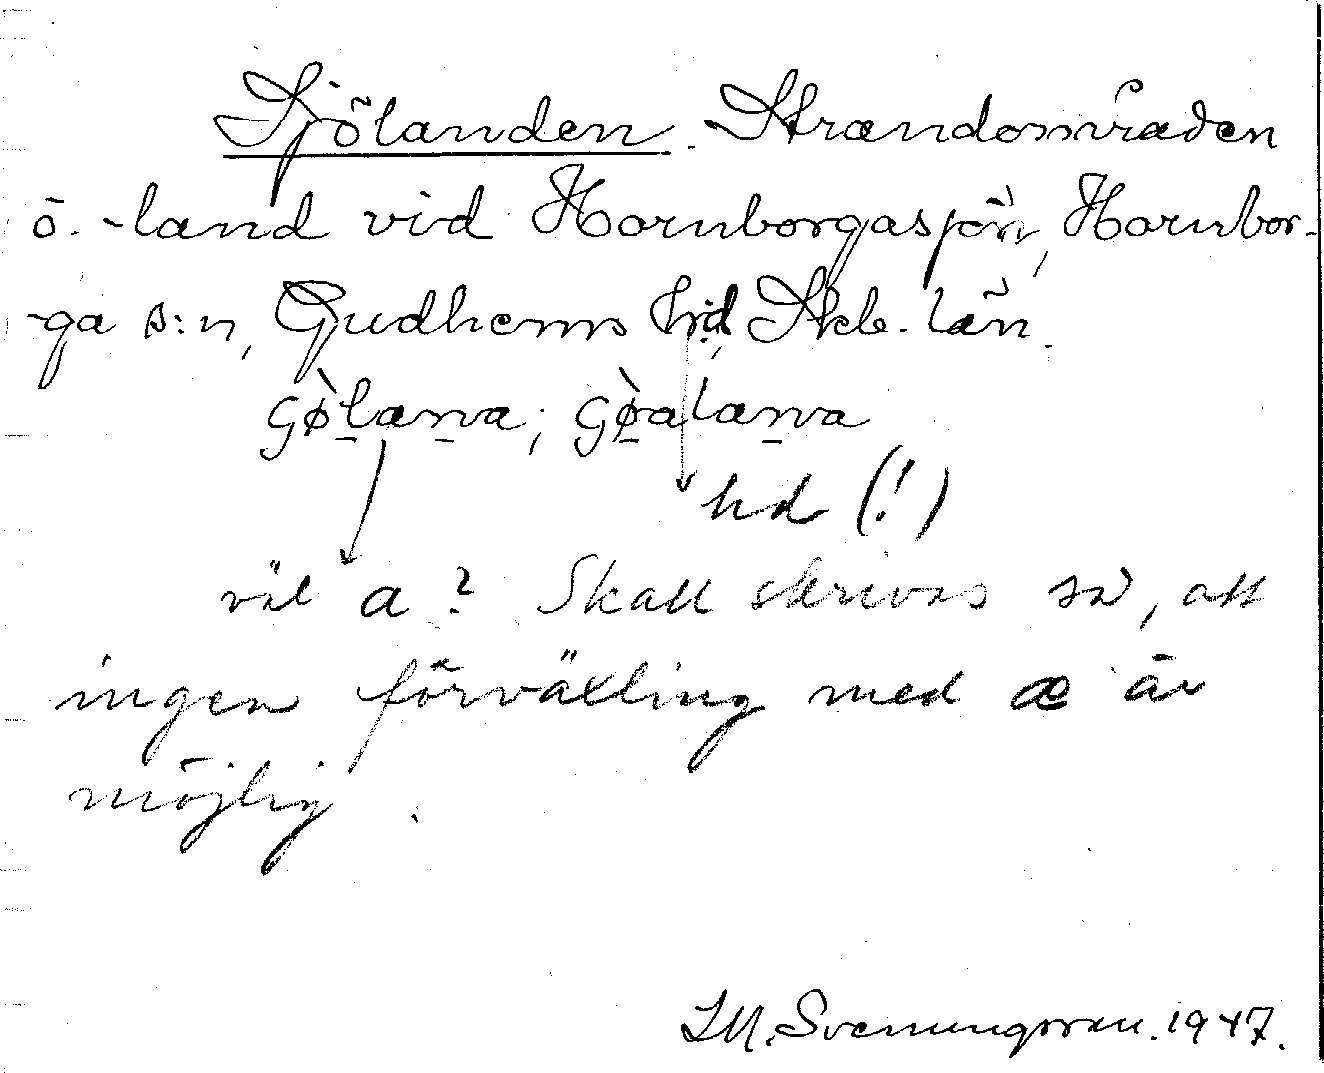 Sjölanden. Strandområden
o. -land vid Hornborgasjön, Hornbor-
ga s:n, Gudhems hd, Skb. län.
hd (!)
väl a? Skall skrivas så, att
ingen förväxling med æ är
möjlig.
S.M. Svenungsson. 1947.